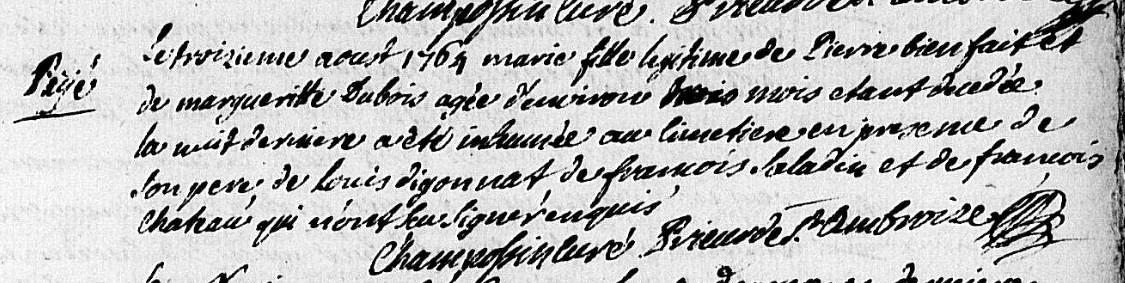 Champossin curé. Prieur de St Ambroize
Pejé
Le troizieme aoust 1764 marie fille legitime de Pierre bien fait et
de margueritte Dubois agée d'environ trois mois etant decedée
la nuit derniere a eté inhumée au Cimetiere en presence de
Son pere de Louis digonnat de francois Saladin et de francois
chateau qui n'ont su signer enquis
Champossin curé Prieur de St Ambroize